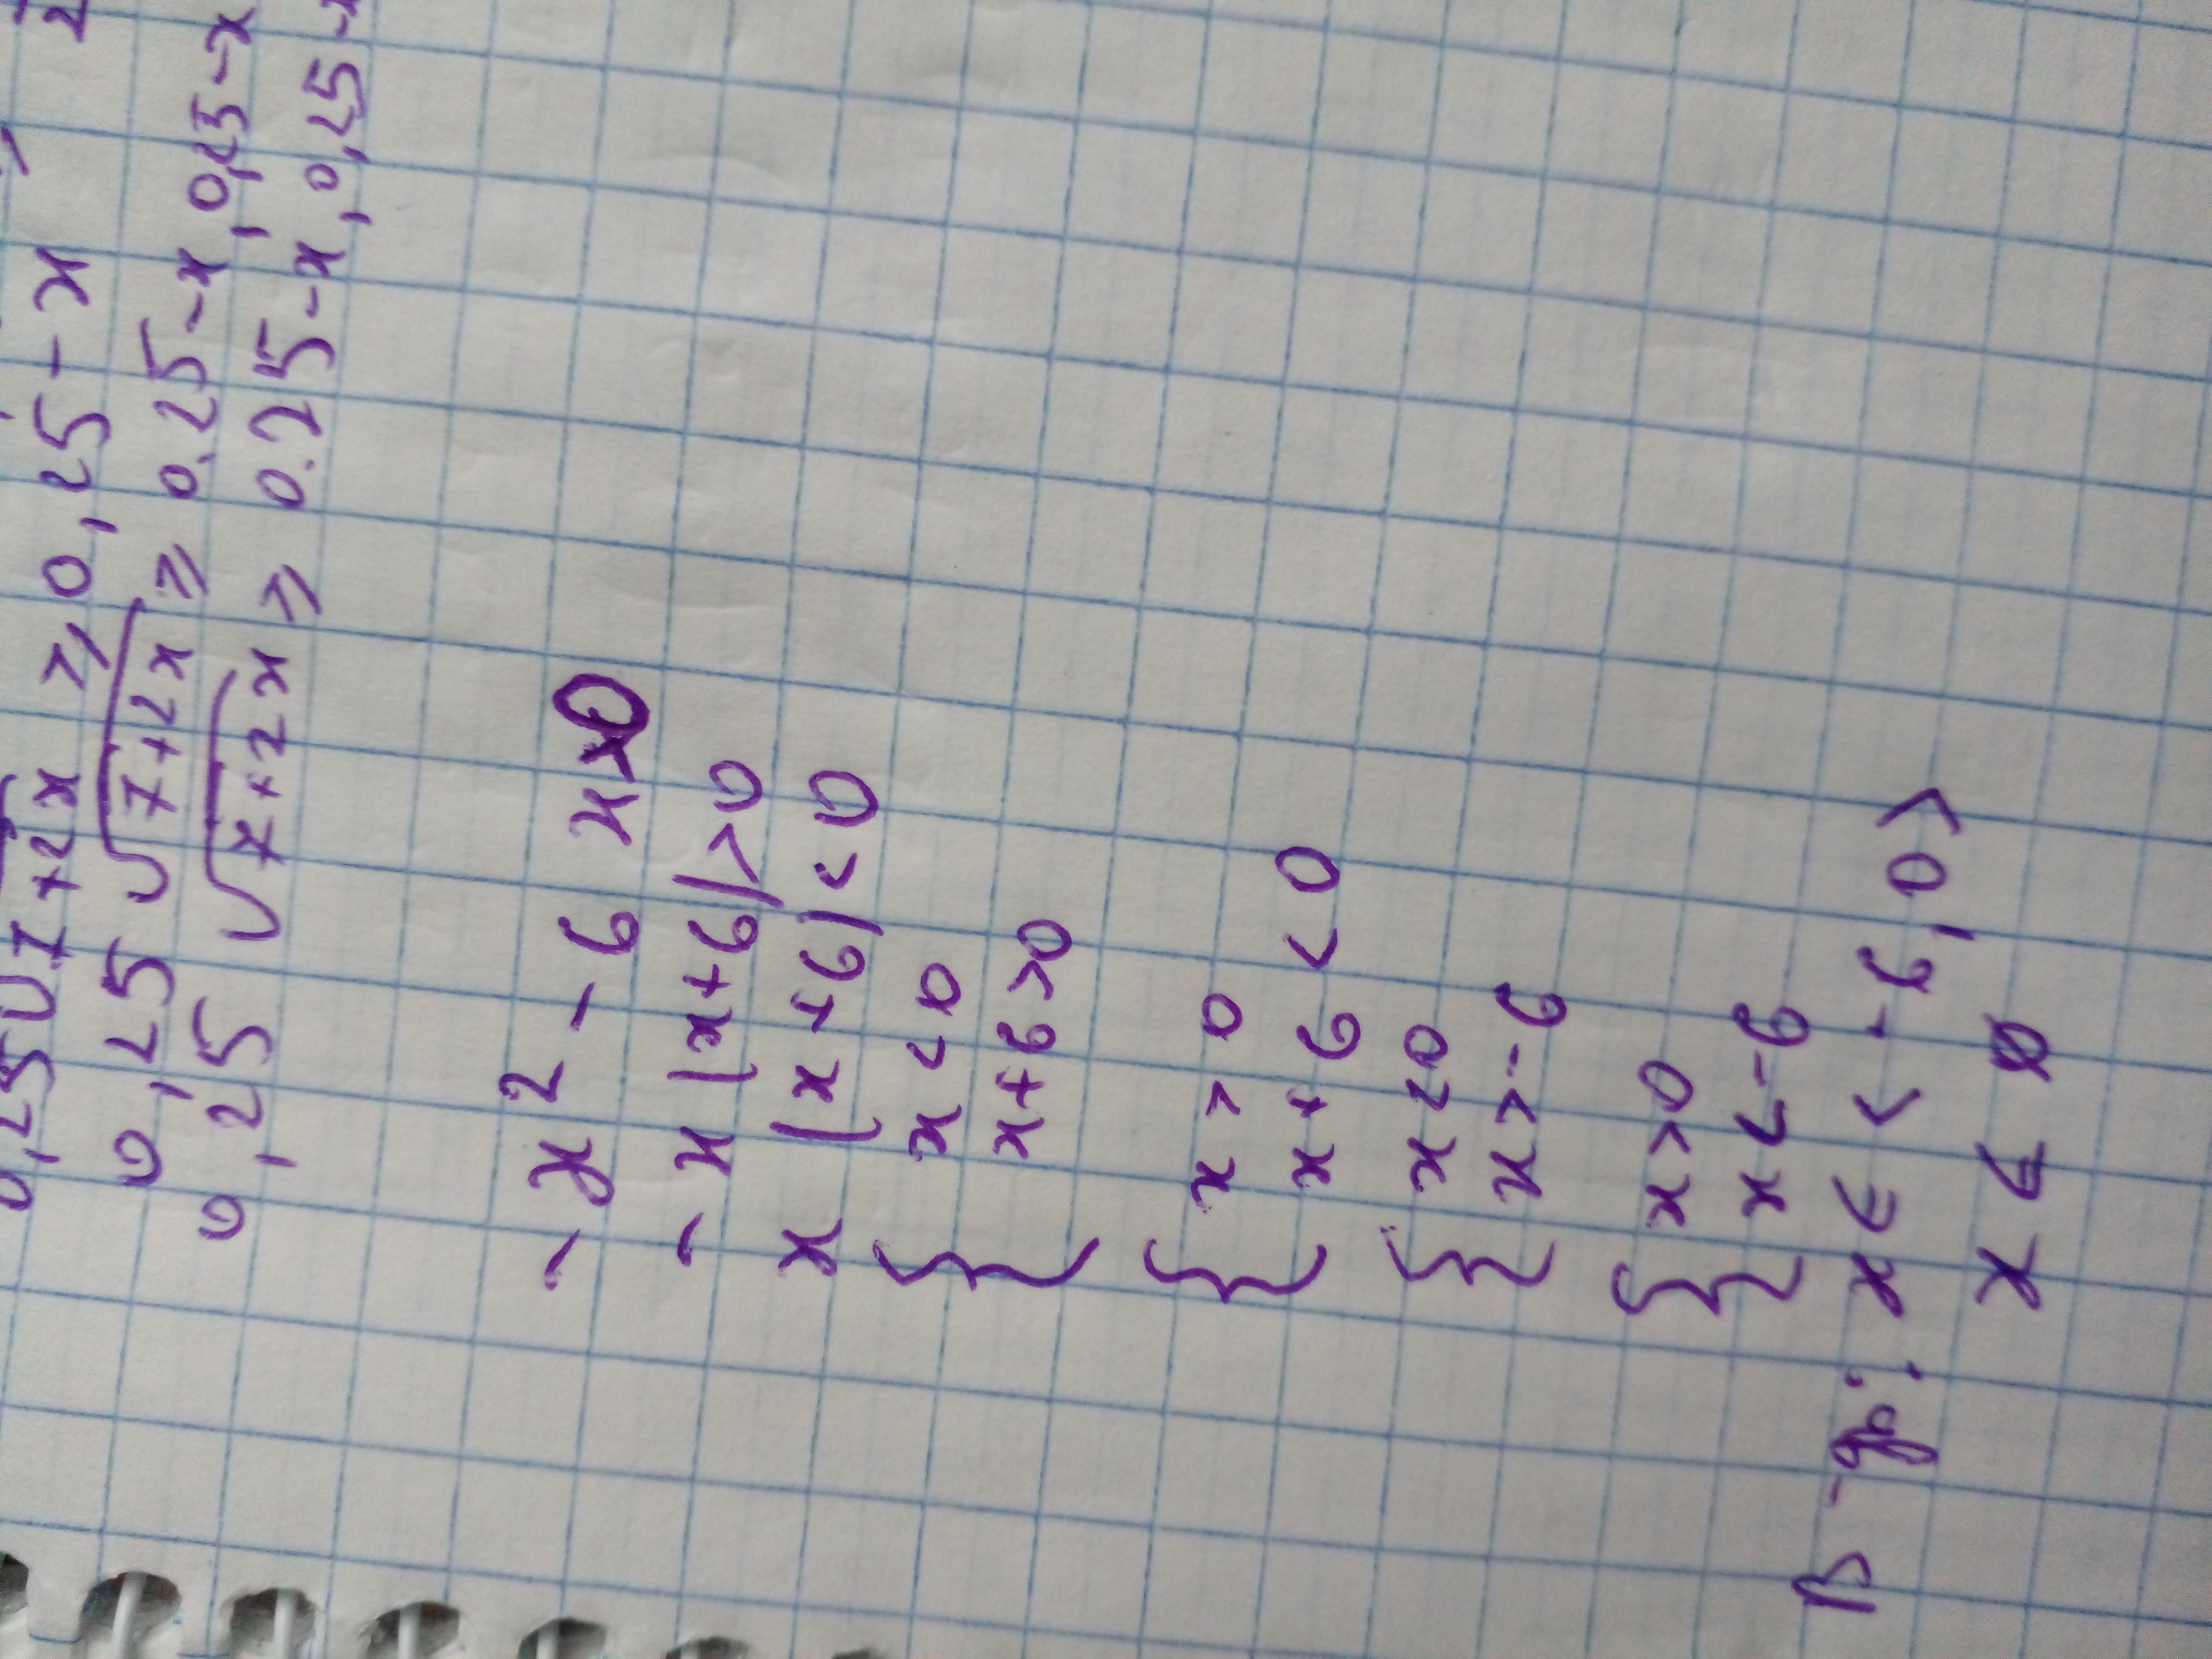 0,25√7+2x ≥ 0,25-x
0,25√7+2x ≥ 0.25-x,0,25-x
0,25√7+2x ≥ 0.25-x,0,25-x
-x²-6x>0
-x(x+6)>0
x(x+6)<0
{x<0
x+6>0
{x>0
x+6<0
{x<0
x>-6
{x>0
x<-6
В-дь: x∈<-6,0>
x∈∅